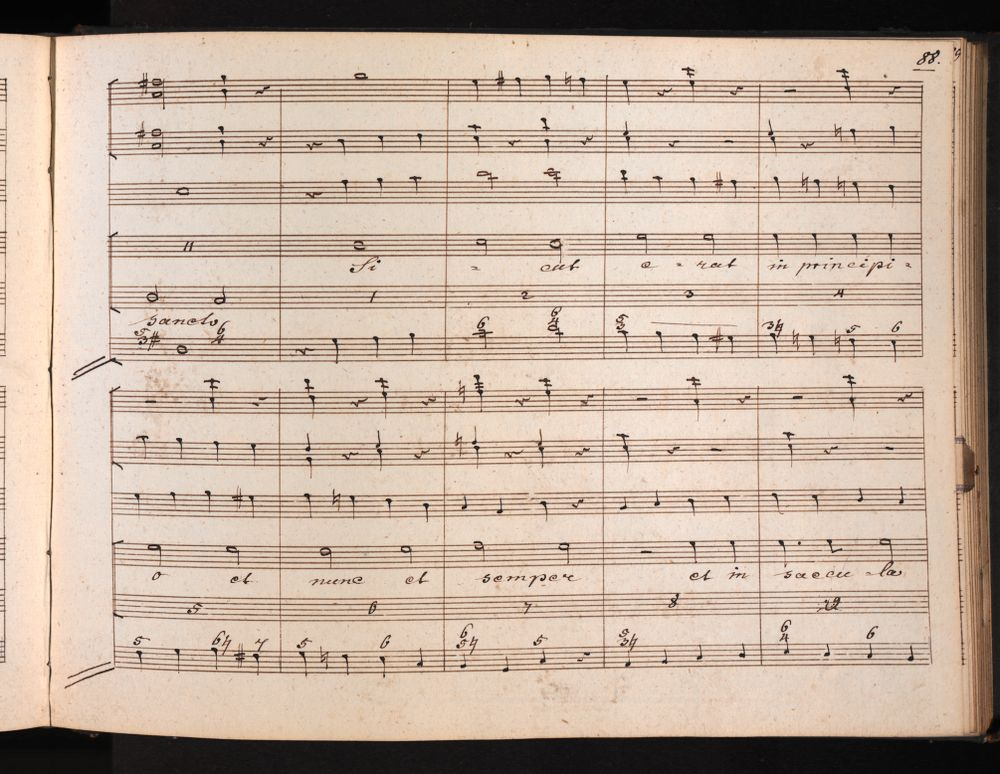 88.
11
Si - cut e - rat in principi -
1 2 3 4
sancto
5 3# 6 4 6 6 4 5 3 3 4 5 6
o et nunc et semper et in saecu - la
5 6 7 8
5 6 4 7 5 6 6 5 4 5 5 3 4 6 4 6